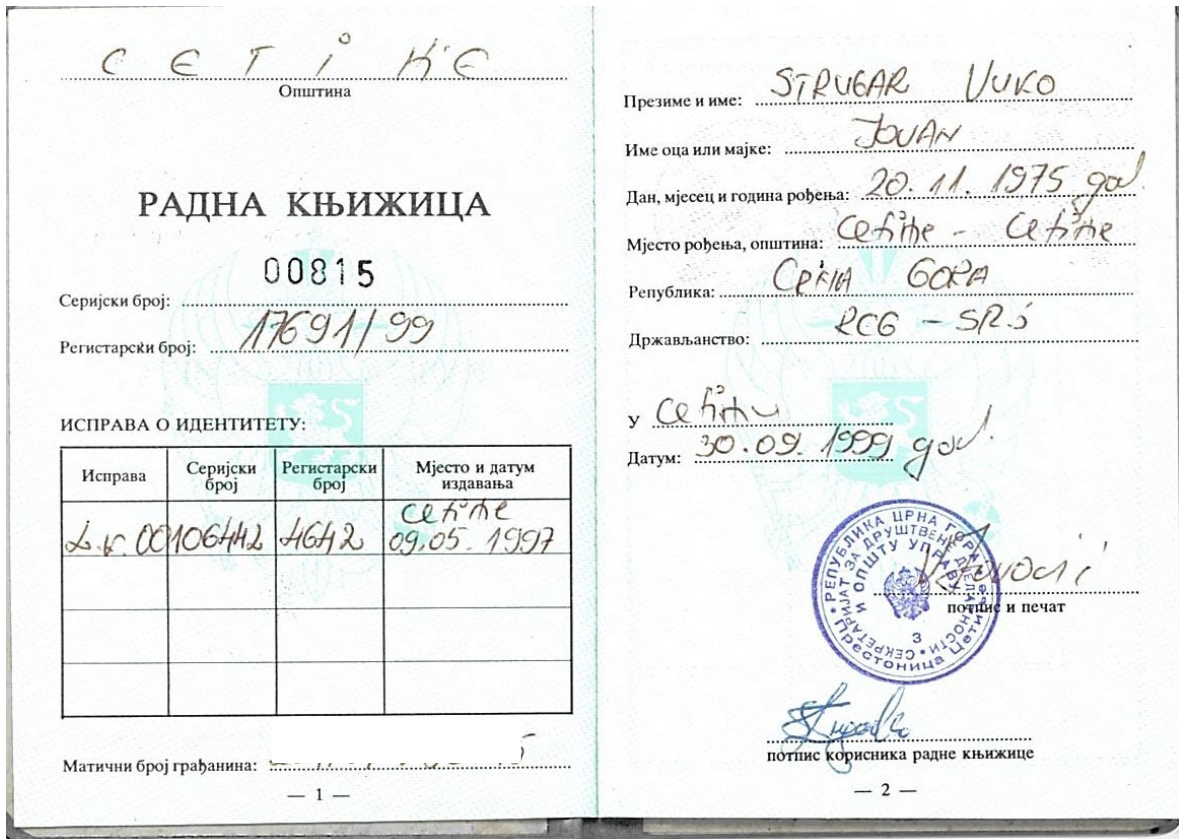 CETIЊE
Општина
РАДНА КЊИЖИЦА
00815
Серијски број:
Регистарски број: 17691/99
ИСПРАВА О ИДЕНТИТЕТУ:
Исправа Серијски број Регистарски број Мјесто и датум издавања
Л.к. 00106442 4642 Cetiње 09.05.1997
Матични број грађанина:
— 1 —
Презиме и име: STRUGAR VUKO
Име оца или мајке: JOVAN
Дан, мјесец и година рођења: 20.11.1975 god
Мјесто рођења, општина: Cetiње - Cetiње
Република: CRNA GORA
Држављанство: RCG - SRJ
У Cetiњu
Датум: 30.09.1999 god.
РЕПУБЛИКА ЦРНА ГОРА
СЕКРЕТАРИЈАТ ЗА ДРУШТВЕНЕ ДЈЕЛАТНОСТИ
И ОПШТУ УПРАВУ
3
Престоница Цетиње
потпис и печат
потпис корисника радне књижице
— 2 —